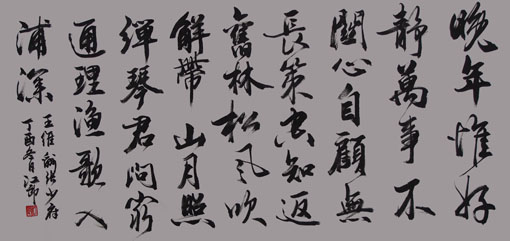 晚年惟好
靜萬事不
關心自顧無
長策空知返
舊林松风吹
解帶山月照
彈琴君問窮
通理渔歌入
浦深
王維酬張少府
丁酉冬月